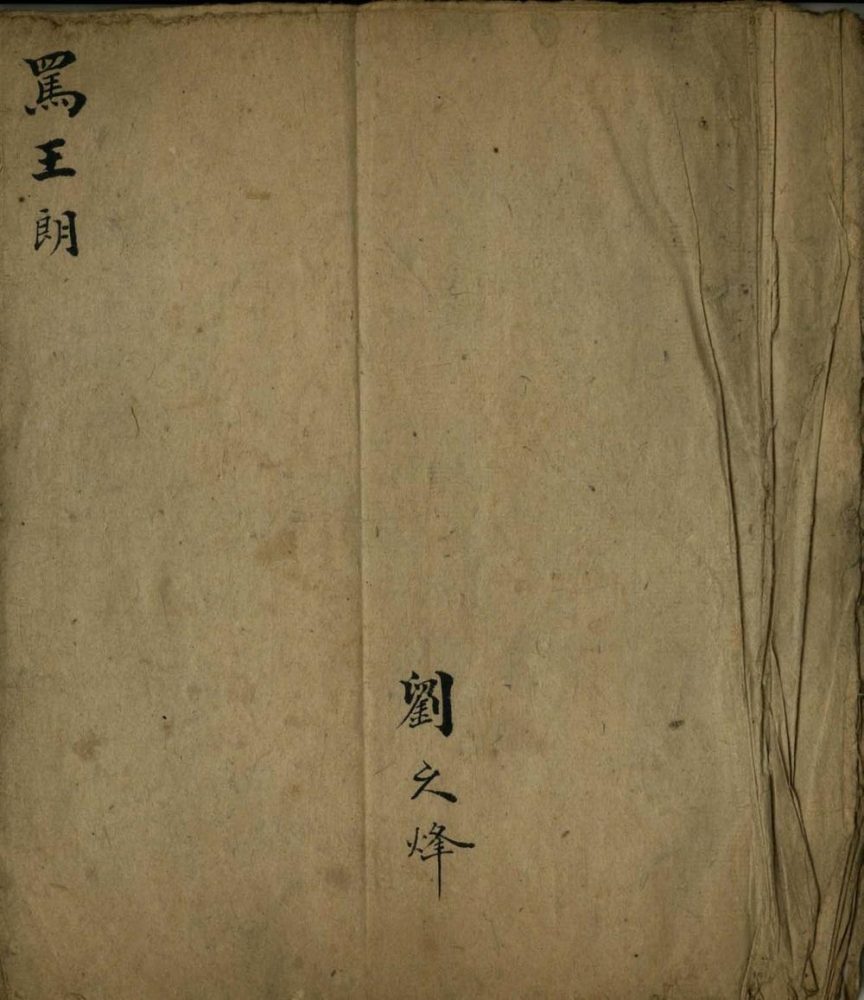 罵王朗
劉烽